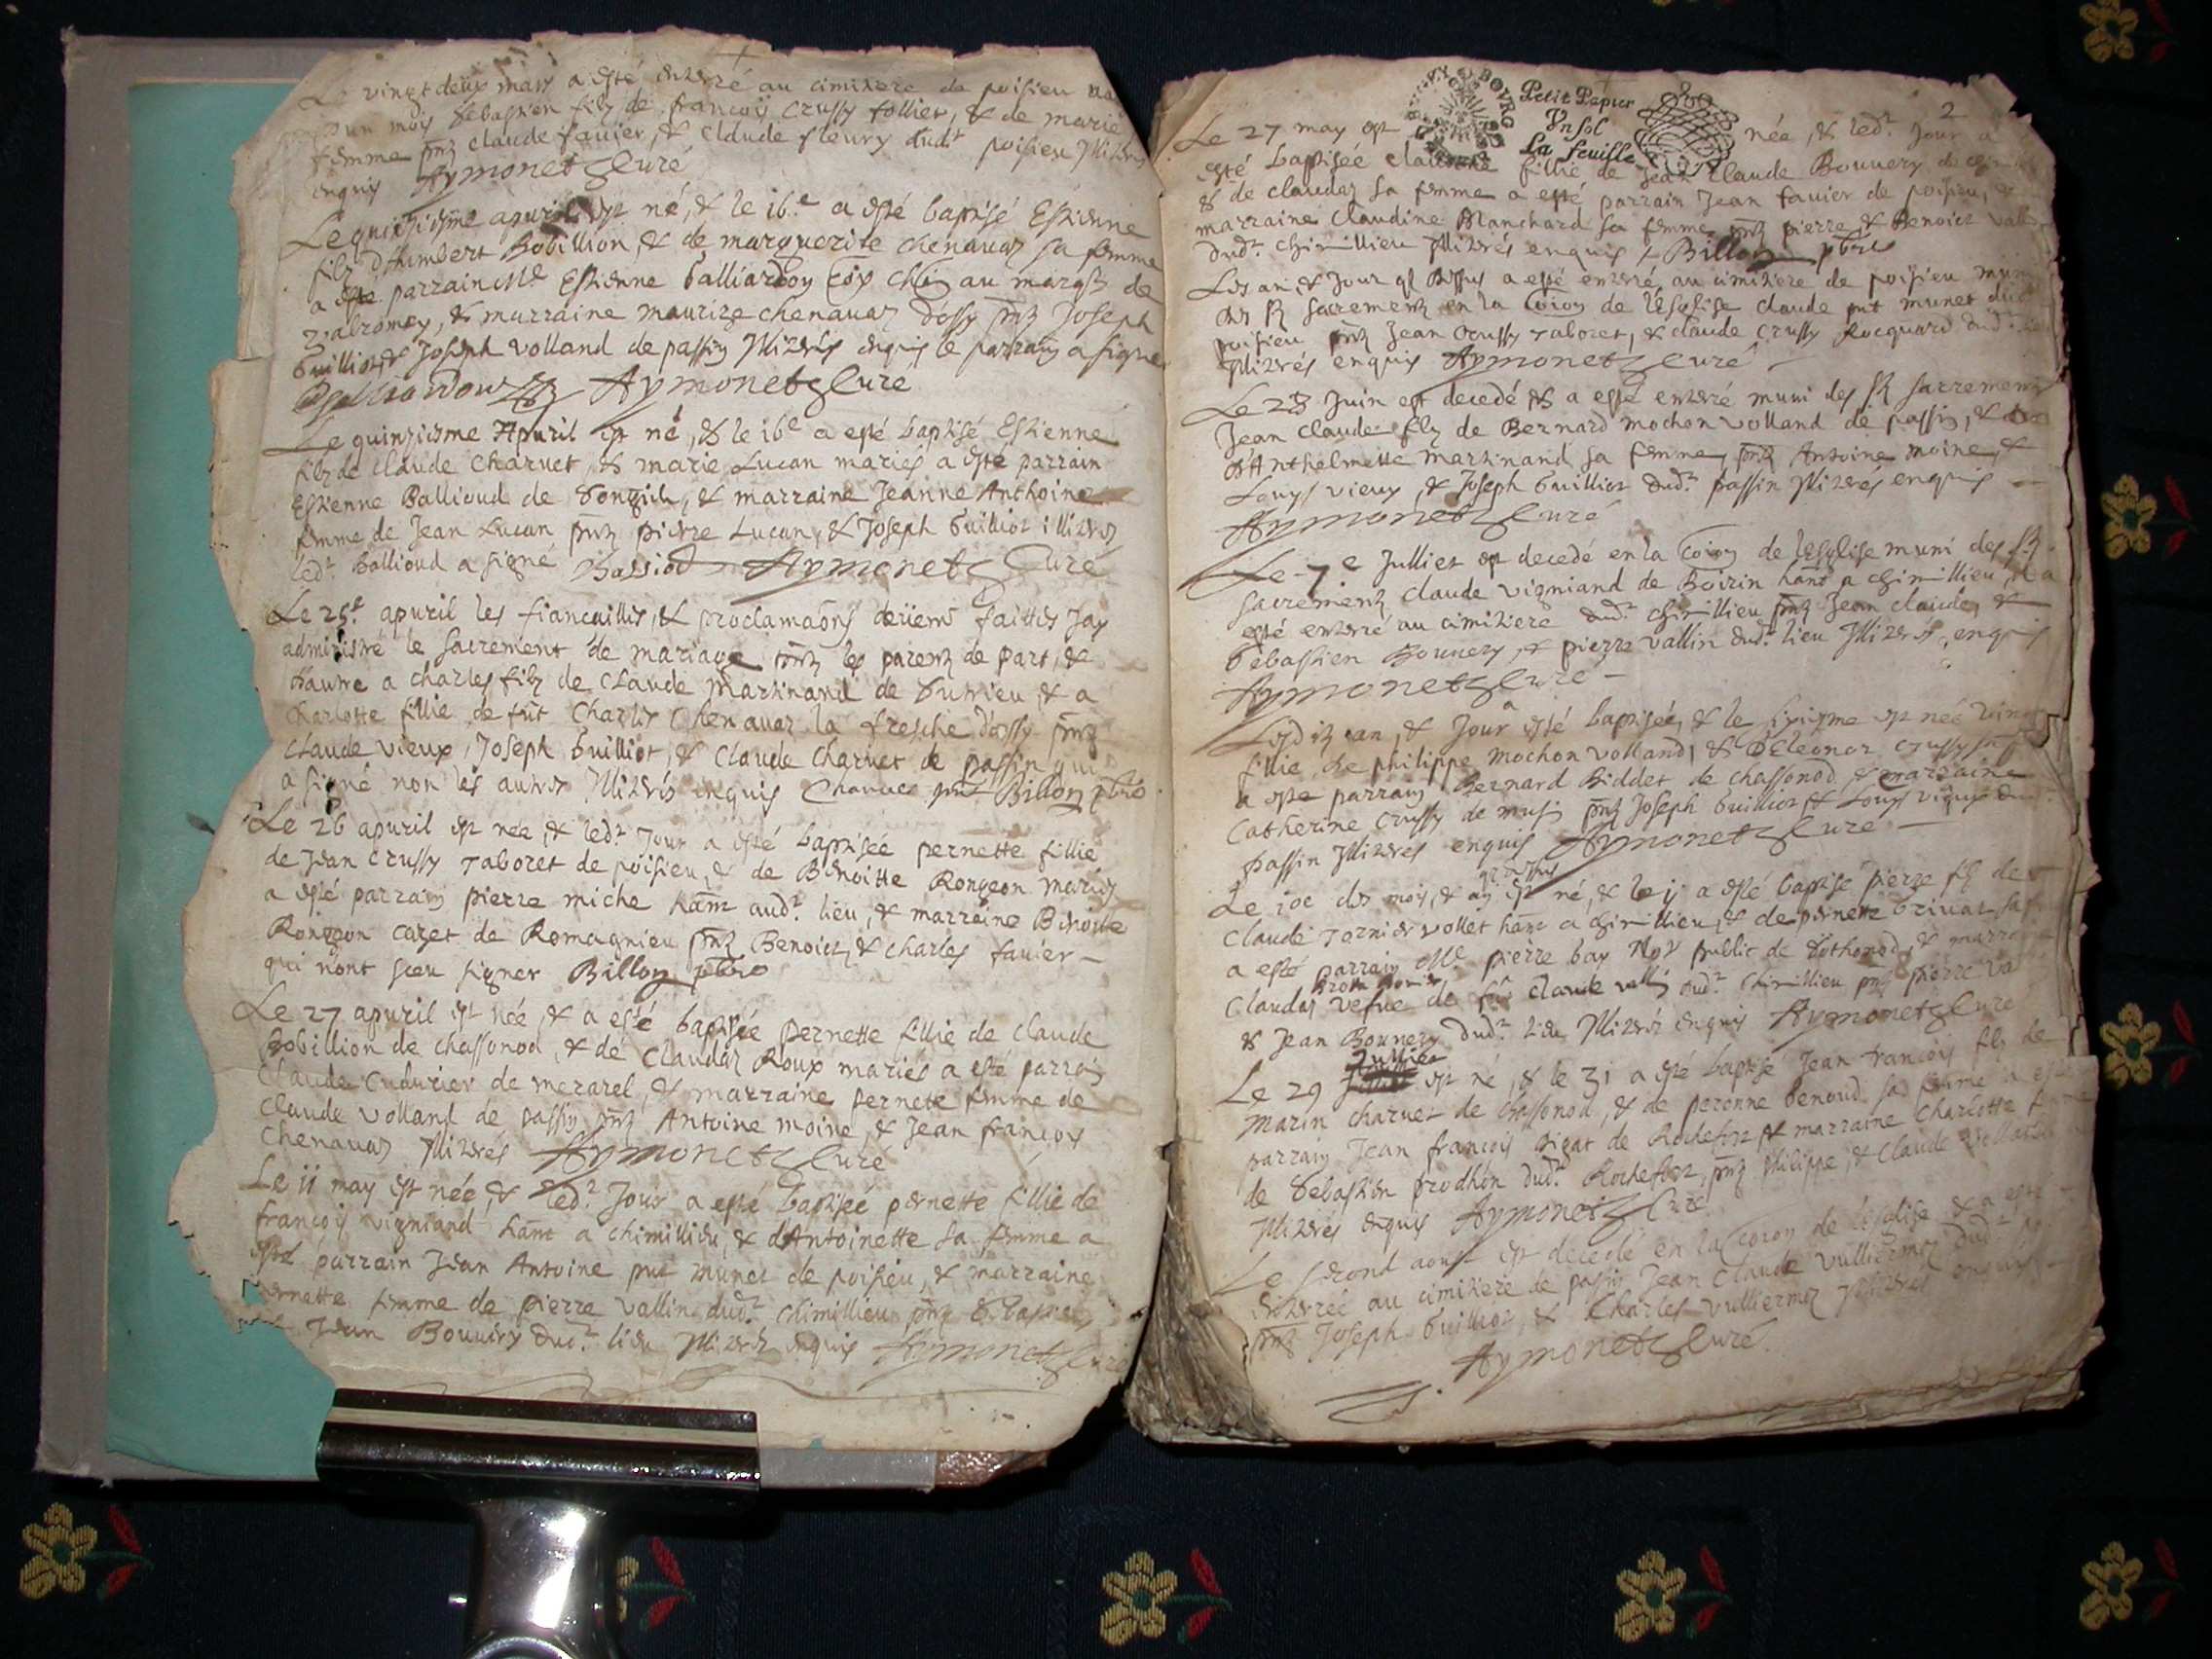 Le vingt deux mars a esté enterré au cimitere de poisieu
d'un mois Sebastien filz de françois Crussy Tollier, & de marie
femme pntz claude favier, & claude fleury dudt poisieu Illitérés
enquis Aymonet Curé
Le quinsiesme apuril est né, & le 16.e a esté baptisé Estienne
filz d'humbert Bobillion, & de marguerite chenauaz sa femme
a esté parrain Me Estienne Galliardon au marqsz de
valromey, & marraine maurize chenauaz d'ossy pntz Joseph
Guilliot & Joseph volland de passin Illitérés enquis le parrain a signé
Galliardon Aymonet Curé
Le quinsiesme Apuril est né, & le 16e a esté baptisé Estienne
filz de claude charuet, & marie Lucan mariés a esté parrain
Estienne Ballioud de Songieu, & marraine Jeanne Anthoine
femme de Jean Lucan pntz pierre Lucan, & Joseph Guilliot illiterez
ledt. Ballioud a signé Balliod Aymonet Curé
Le 25e. apuril les fiancailles, & proclamaons deüem̃t faittes Jay
administré le sacrement de mariage pntz les parentz de part, &
d'autre a charles filz de Claude Martinand de Sutrieu & a
charlotte fillie de fut Charles Chenauaz la fresche d'ossy pntz
claude vieux, Joseph Guilliot, & Claude Charuet de passin qui
a signé non les autres Illiterés enquis Charuet pnt Billon pbre
Le 26 apuril est née, & ledt Jour a esté baptisée pernette fillie
de Jean Crussy Taboret de poisieu, & de Benoitte Rongeon mariez
a esté parrain pierre miche hant audt. lieu, & marraine Benoite
Rongeon cazet de Romagnieu pntz Benoict, & charles favier
qui n'ont sceu signer Billon pbre
Le 27 apuril est née, & a esté baptisée pernette fillie de claude
Bobillion de chassonod, & de Claudaz Roux mariés a esté parrain
Claude Cuturier de merarel, & marraine pernette femme de
Claude volland de passin pntz Antoine moine, & Jean françois
Chenauaz Illiterés Aymonet Curé
Le 11 may est née, & ledt Jour a esté baptisée pernette fillie de
françois vigniand hant a chimillieu, & d'Antoinette sa femme a
esté parrain Jean Antoine put munet de poisieu, & marraine
pernette femme de pierre vallin dudt. chimillieu pntz Sebastien
Jean Bouuery dudt. lieu Illiterez enquis Aymonet Curé
Petit Papier
Vn sol
La feuille
2
Le 27 may est née, & ledt. Jour a
esté baptisée claudine fillie de Jean Claude Bouuery de
& de claudaz sa femme a esté parrain Jean favier de poisieu, &
marraine Claudine Blanchard sa femme pntz pierre, & Benoict vallin
dudt. chimillieu Illiterés enquis Billon pbre
Les an, & Jour q̃ dessus a esté enterré au cimitiere de poisieu muni
des sz sacrementz en la Coion de l'Esglise claude put munet dudt
poisieu pntz Jean Crussy Taboret, & claude Crussy Rocquard dudt. lieu
Illiterés enquis Aymonet Curé
Le 23 Juin est decedé & a esté enterré muni des sz sacrementz
Jean Claude filz de Bernard mochon volland de passin, &
d'Anthelmette martinand sa femme, pntz Antoine moine, &
Louys vieux, & Joseph Guilliot dudt. passin Illiterés enquis
Aymonet Curé
Le 7e Julliet est decedé en la Coion de lesglise muni des sz.
sacrementz claude vigniand de Boirin hant a chimillieu, & a
esté enterré au cimitiere dudt. chimillieu pntz Jean claude, &
Sebastien Bouuery, & pierre vallin dudt. lieu Illiterés, enquis
Aymonet Curé
Lesditz an, & Jour a esté baptisée, & le sixiesme est née
fillie de philippe mochon volland, & d'Eleonor Crussy
a esté parrain Bernard Biddet de chassonod, & marraine
Catherine Crussy de musin pntz Joseph Guilliot & Louys vieux dudt
passin Illiterés enquis Aymonet Curé
Le 10e des mois, & an q̃ dessus est né, & le 11 a esté baptisé pierre filz de
claude Tornier vollet hant a chimillieu, & de pernette
a esté parrain Me. pierre bay Nore public de Sothonod, & marraine
claudaz vefue de fut claude vallin dudt. chimillieu pntz pierre
& Jean Bouuery dudt. lieu Illiterés enquis Aymonet Curé
Le 29 Julliet est né, & le 31 a esté baptisé Jean francois filz de
Marin charuet de chassonod, & de peronne Genoud sa femme a esté
parrain Jean françois rigat de Rochefort & marraine Charlotte femme
de Sebastien prodhon dudt. Rochefort, pntz philippe, & Claude
Illiterés enquis Aymonet Curé
Le second aoust est decedé en la Coion de l'esglise & a esté
enterré au cimitiere de passin Jean Claude vulliermoz dudt
pntz Joseph Guilliot, & Charles vulliermoz Illiterés enquis
Aymonet Curé